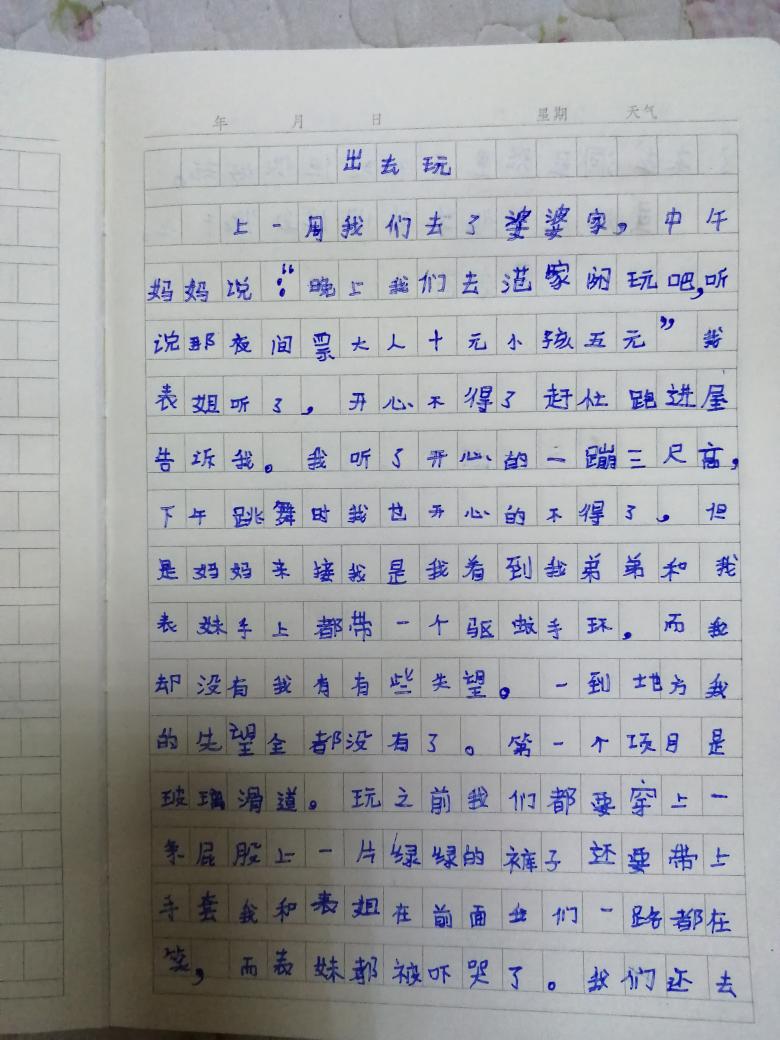 年 月 日 星期 天气
出去玩
上一周我们去了婆婆家,中午
妈妈说:“晚上我们去范家闲玩吧,听
说那夜间票大人十元小孩五元”我
表姐听了,开心不得了赶忙跑进屋
告诉我。我听了开心的一蹦三尺高,
下午跳舞时我也开心的不得了。但
是妈妈来接我是我看到我弟弟和我
表妹手上都带一个驱蚊手环,而我
却没有我有有些失望。一到地方我
的失望全都没有了。第一个项目是
玻璃滑道。玩之前我们都要穿上一
条屁股上一片绿绿的裤子还要带上
手套我和表姐在前面 们一路都在
笑,而表妹都被吓哭了。我们还去